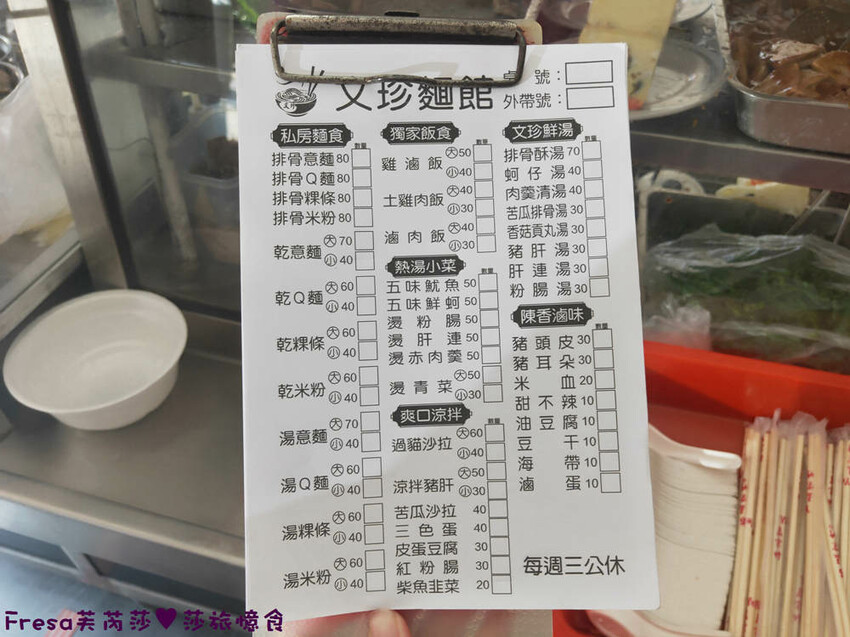 文珍麵館
文珍
桌 號：
外帶號：
私房麵食 數量
排骨意麵80
排骨Q麵80
排骨粿條80
排骨米粉80
乾意麵 大70
小40
乾Q麵 大60
小40
乾粿條 大60
小40
乾米粉 大60
小40
湯意麵 大70
小40
湯Q麵 大60
小40
湯粿條 大60
小40
湯米粉 大60
小40
獨家飯食 數量
雞滷飯 大50
小40
土雞肉飯 大40
小30
滷肉飯 大40
小30
熱湯小菜 數量
五味魷魚50
五味鮮蚵50
燙粉腸50
燙肝連50
燙赤肉羹50
燙青菜 大50
小30
爽口涼拌 數量
過貓沙拉 大60
小40
涼拌豬肝 大50
小30
苦瓜沙拉 40
三色蛋 40
皮蛋豆腐 30
紅粉腸 30
柴魚韭菜 20
文珍鮮湯 數量
排骨酥湯70
蚵仔湯40
肉羹清湯40
苦瓜排骨湯30
香菇貢丸湯30
豬肝湯30
肝連湯30
粉腸湯30
陳香滷味 數量
豬頭皮30
豬耳朵30
米血20
甜不辣10
油豆腐10
豆干10
海帶10
滷蛋10
每週三公休
Fresa芙芮莎♥莎旅憶食